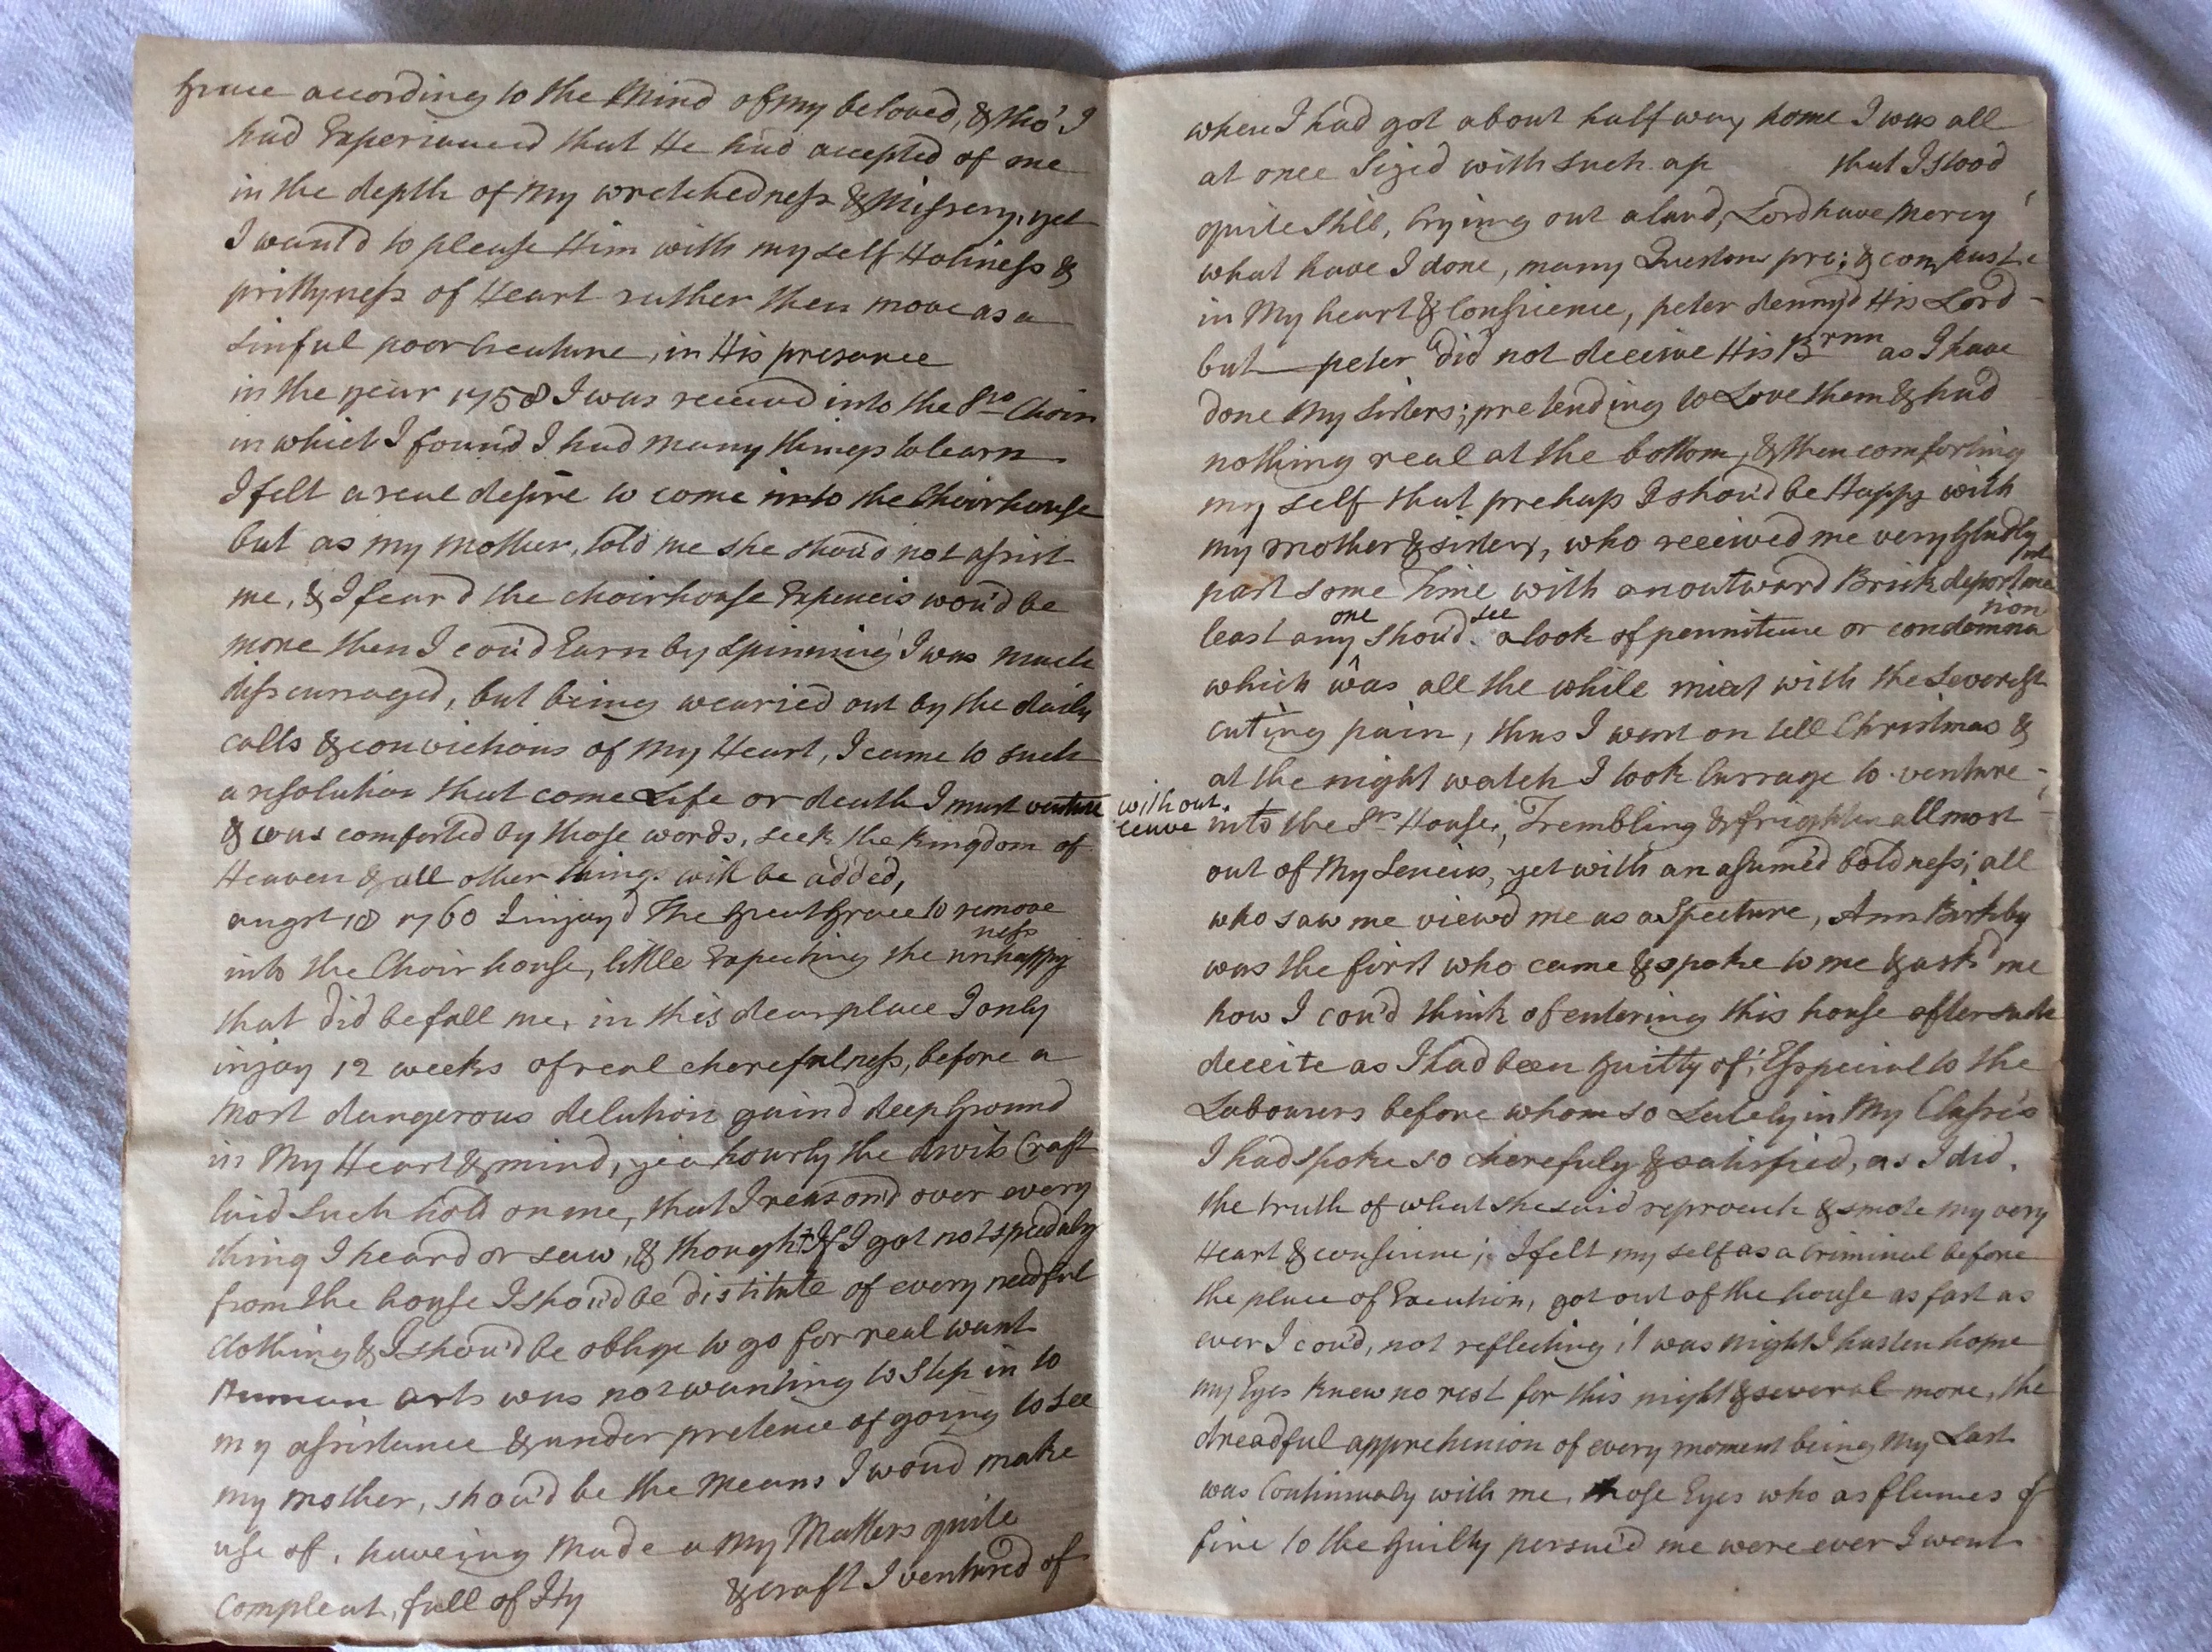 Grace according to the Mind of my beloved, & tho' I
had Experianced that He had accepted of me
in the depth of My wretchedness & Missery, yet
I want'd to please Him with my self Holiness &
prittyness of Heart rather then move as a
sinful poor Creature, in His presance
in the year 1758 I was received into the Srs Choir
in which I found I had many things to learn
I felt a real desire to come into the Choirhouse
but as my mother, told me she shou'd not assist
me, & I fear'd the choirhouse Expencis wou'd be
more then I cou'd Earn by spinning I was much
disscurraged, but being wearied out by the daily
calls & convictions of My Heart, I came to such
a resolution that come Life or death I must venture
& was comforted by those words, seek the kingdom of
Heaven & all other things will be added,
augst 18 1760 I injoy'd The Great Grace to remove
into the Choir house, little Expecting the unhappyness
that did befall me, in this dear place I only
injoy 12 weeks of real cherefulness, before a
most dangerous delution gain'd deep Ground
in My Heart & mind, yea hourly the Craft
laid such hold on me, that I reason'd over every
thing I heard or saw, & thought If I got not speedaly
from the house I shou'd be distitute of every needful
clothing & I shou'd be oblige to go for real want
Human arts was not wanting to step in to
my assistance & under pretence of going to see
my mother, shou'd be the means I woud make
use of, haveing Made a my Matters quite
compleat, full of Hy & craft I ventured of
when I had got about half way home I was all
at once Sizd with such ap that I stood
quite still, Crying out aloud, Lord have Mercy
what have I done, many Questons pro; &
in My heart & Consicence, peter denny'd His Lord -
but peter did not deceive His Brnn as I have
done My sisters; pretending to Love them & had
nothing real at the bottom, & then comforting
my self that prehaps I shou'd be Happy with
my mother & sisters, who received me very Gladly
past some Time with an outward Brisk deportment
least any one shou'd see a look of pennitence or condemnanion
which was all the while mixt with the Severest
cuting pain, thus I went on tell Christmas &
at the night watch I took Currage to venture -
without leave into the Srs House, Trembling & frighten allmost
out of My Sencis, yet with an assumed boldness; all
who saw me view'd me as a Specture, Ann Birkby
was the first who came & spoke to me & ask'd me
how I cou'd think of entering this house after such
deceite as I had been guilty of; Esspecial to the
Labourers before whom so Lately in My Classes
I had spoke so cherefuly & satisfied, as I did,
the truth of what she said reproach & smote my very
Heart & consinence; I felt my self as a Criminal before
the place of Execution, got out of the house as fast as
ever I cou'd, not reflecting it was Night I hasten home
my Eyes knew no rest for this night & several more, the
dreadful apprehinsion of every moment being My Last
was Continualy with me, those Eyes who as flames of
fire to the Guilty persued me were ever I went